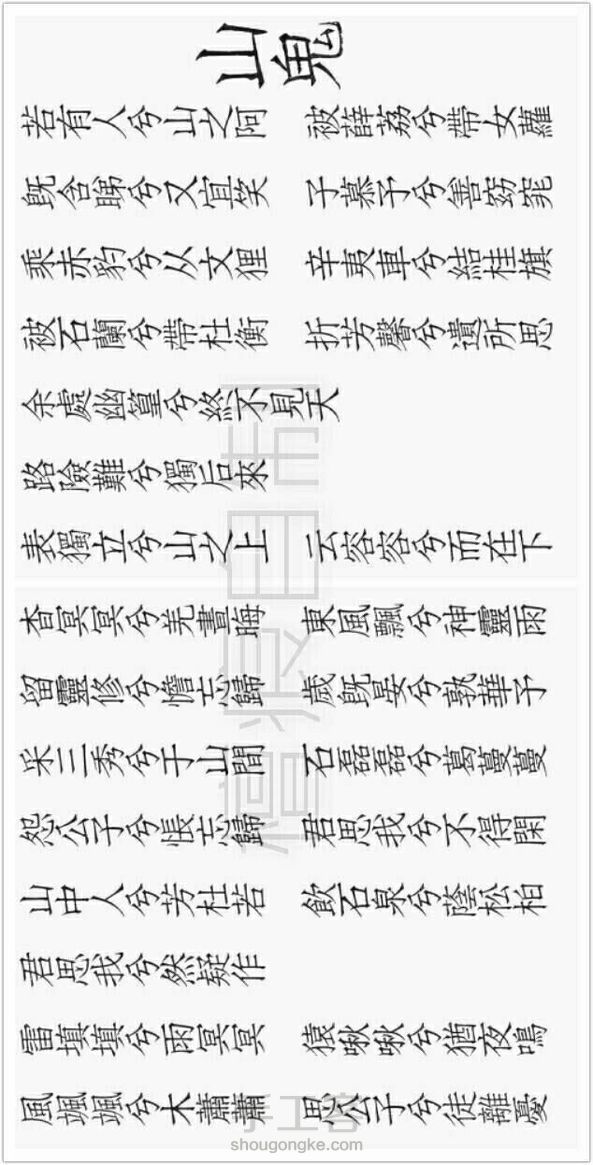 山鬼
若有人兮山之阿 被薜荔兮帶女蘿
既含睇兮又宜笑 子慕予兮善窈窕
乘赤豹兮从文狸 辛夷車兮結桂旗
被石蘭兮帶杜衡 折芳馨兮遺所思
余處幽篁兮終不見天
路險難兮獨后來
表獨立兮山之上 云容容兮而在下
杳冥冥兮羌晝晦 東風飄兮神靈雨
留靈修兮憺忘歸 歲既晏兮孰華予
采三秀兮于山間 石磊磊兮葛蔓蔓
怨公子兮悵忘歸 君思我兮不得閑
山中人兮芳杜若 飲石泉兮蔭松柏
君思我兮然疑作
雷填填兮雨冥冥 猿啾啾兮猶夜鳴
風颯颯兮木蕭蕭 思公子兮徒離憂
手工客
shougongke.com